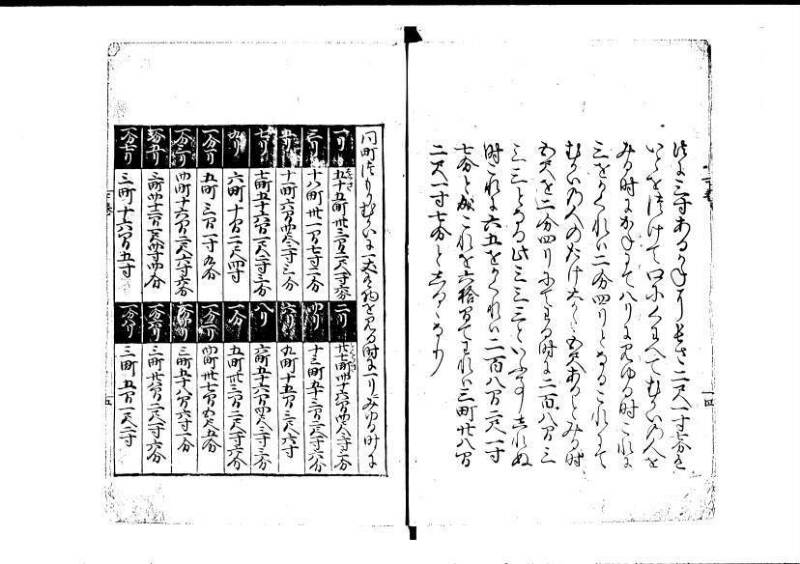 法に三寸あるかねより長さ二尺一寸七分を
いとを付けて口にくわへてむかいの人を
みる時にかねにて八りに見ゆる時これに
三をかくれは二分四りとなるこれにて
むかいの人のたけ五尺あるとみる時
五尺を二分四りにてわる時に二百八間三
三三となる此三三三といふ事しれぬ
時これに六五をかくれは二百八間二尺一寸
七分と成これを六拾間てわれは三町廿八間
二尺一寸七分としるへきなり
一四
同町つもりのむかいに一丈の物を見る時に一りにみゆる時は
一り 五十五町卅三間二尺一寸六分
二り 廿七町四十六間四尺三寸三分
三り 十八町卅一間七寸二分
四り 十三町五十三間二尺一寸六分
五り 十一町六間四尺三寸三分
六り 九町十五間三尺六寸
七り 七町五十六間一尺二寸三分
八り 六町五十六間四尺三寸三分
九り 六町十間二尺四寸
一分 五町卅三間二尺一寸六分
一分一り 五町三間一寸九分
一分二り 四町卅七間五尺五分
一分三り 四町十六間二尺六寸六分
一分四り 三町五十八間六寸一分
一分五り 三町四十二間一尺四寸四分
一分六り 三町廿八間二尺一寸六分
一分七り 三町十六間五寸
一分八り 三町五間一尺二寸